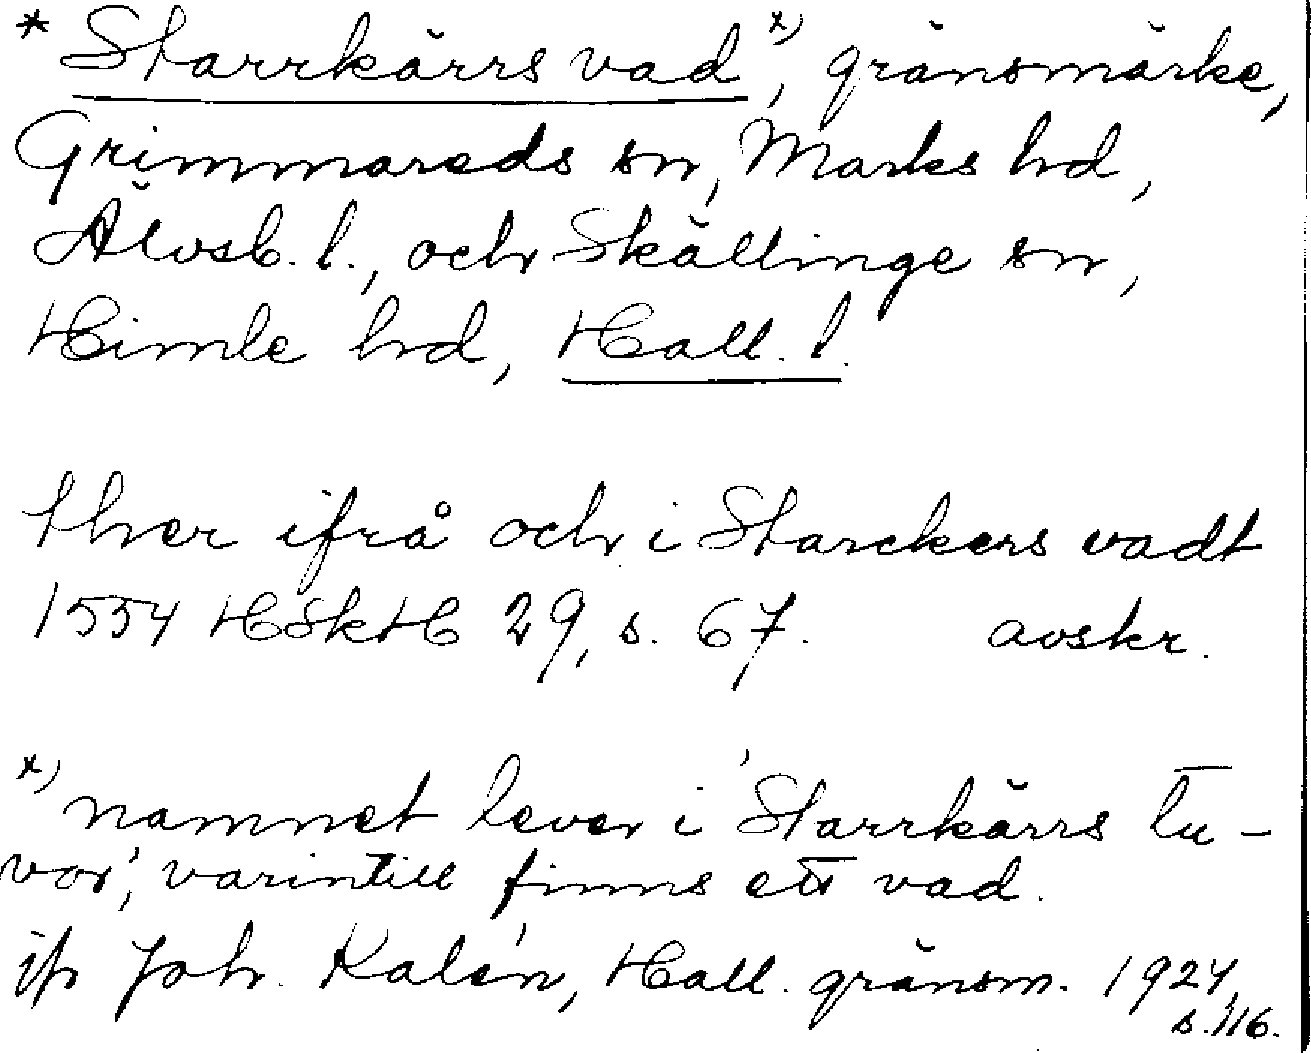 * Starrkärrs vad x), gränsmärke,
Grimmareds sn, Marks hd,
Älvsb. l., och Skällinge sn,
Himle hd, Hall. l.
ther ifrå och i Starckers vadt
1554 HSkH 29, s. 67. avskr.
x) namnet lever i 'Starrkärrs tu-
vor', varintill finns ett vad.
jfr Joh. Kalén, Hall. gränsm. 1924,
s. 116.